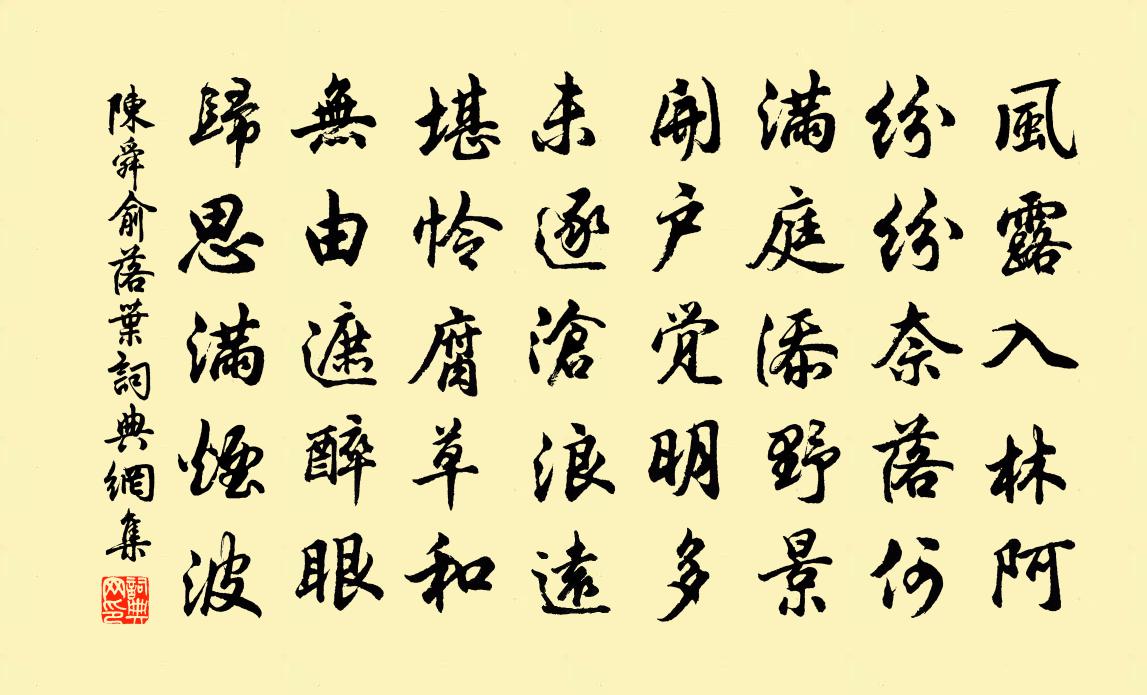 風露入林阿
紛紛奈落何
滿庭添野景
開戶覺明多
未逐滄浪遠
堪怜腐草和
無由遮醉眼
歸思滿煙波
陳舜俞落葉詞典網集
詞典網印